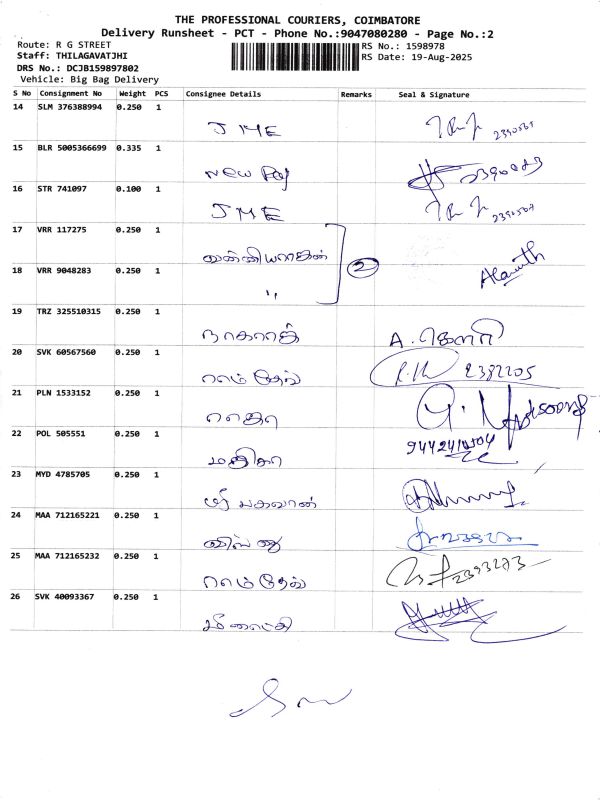 THE PROFESSIONAL COURIERS, COIMBATORE
Delivery Runsheet - PCT - Phone No.:9047080280 - Page No.:2
Route: R G STREET
Staff: THILAGAVATJHI
DRS No.: DCJB159897802
Vehicle: Big Bag Delivery
RS No.: 1598978
RS Date: 19-Aug-2025
S No Consignment No Weight PCS Consignee Details Remarks Seal & Signature
14 SLM 376388994 0.250 1
JME
15 BLR 5005366699 0.335 1
New
16 STR 741097 0.100 1
JME
17 VRR 117275 0.250 1
18 VRR 9048283 0.250 1
" 2
19 TRZ 325510315 0.250 1
நாகராஜ் A.
20 SVK 60567560 0.250 1
ராம் தேவ் 2382205
21 PLN 1533152 0.250 1
22 POL 505551 0.250 1
23 MYD 4785705 0.250 1
ஸ்ரீ பகவான்
24 MAA 712165221 0.250 1
விஷ்ணு
25 MAA 712165232 0.250 1
ராம் தேவ் 2393273
26 SVK 40093367 0.250 1
மீனாட்சி